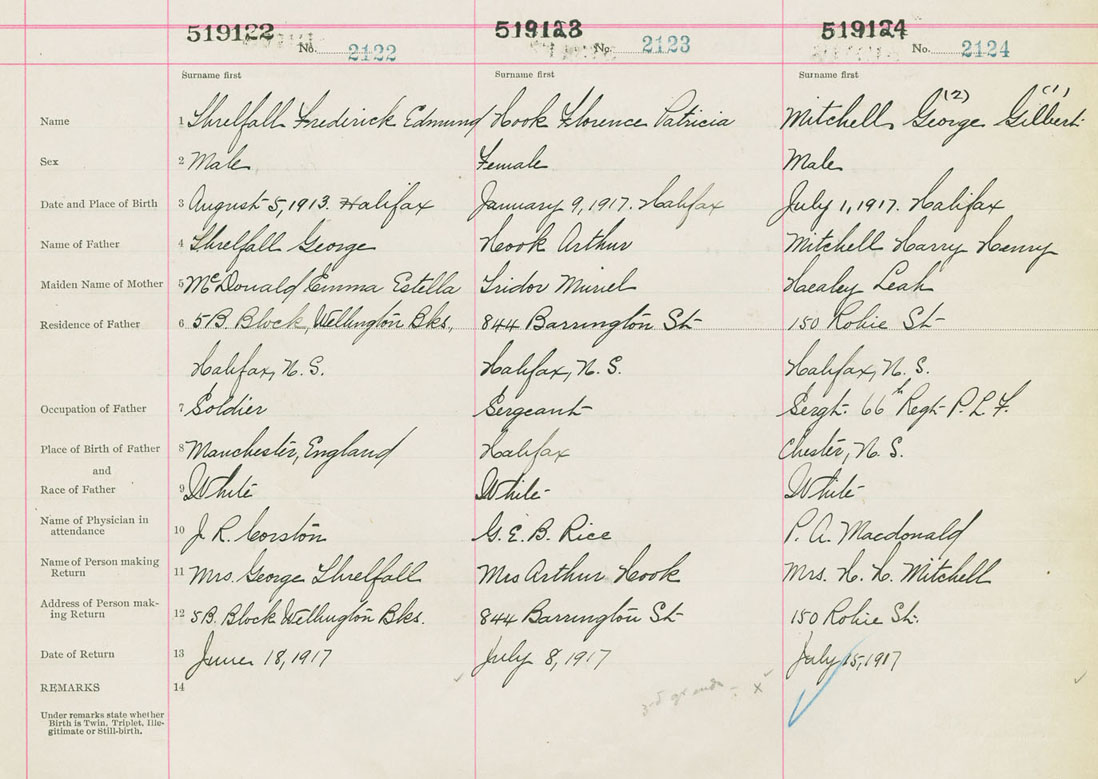 519122 519123 519124
No. 2122 No. 2123 No. 2124
Surname first Surname first Surname first
Name 1 Threlfall Frederick Edmund Hook Florence Patricia Mitchell George (2) Gilbert (1)
Sex 2 Male Female Male
Date and Place of Birth 3 August 5, 1913. Halifax January 9, 1917. Halifax July 1, 1917. Halifax
Name of Father 4 Threlfall George Hook Arthur Mitchell Harry Henry
Maiden Name of Mother 5 McDonald Emma Estella Muriel Leah
Residence of Father 6 5B. Block, Wellington Bks., 844 Barrington St 150 Robie St
Halifax, N.S. Halifax, N.S. Halifax, N.S.
Occupation of Father 7 Soldier Sergeant Sergt. 66th Regt P.L.F.
Place of Birth of Father 8 Manchester, England Halifax Chester, N.S.
and
Race of Father 9 White White White
Name of Physician in
attendance 10 J. R. Corston G. E. B. Rice P. A. Macdonald
Name of Person making
Return 11 Mrs. George Threlfall Mrs Arthur Hook Mrs. H. H. Mitchell
Address of Person mak-
ing Return 12 5B. Block Wellington Bks. 844 Barrington St 150 Robie St.
Date of Return 13 June 18, 1917 July 8, 1917 July 15, 1917
REMARKS 14
Under remarks state whether
Birth is Twin, Triplet, Ille-
gitimate or Still-birth.